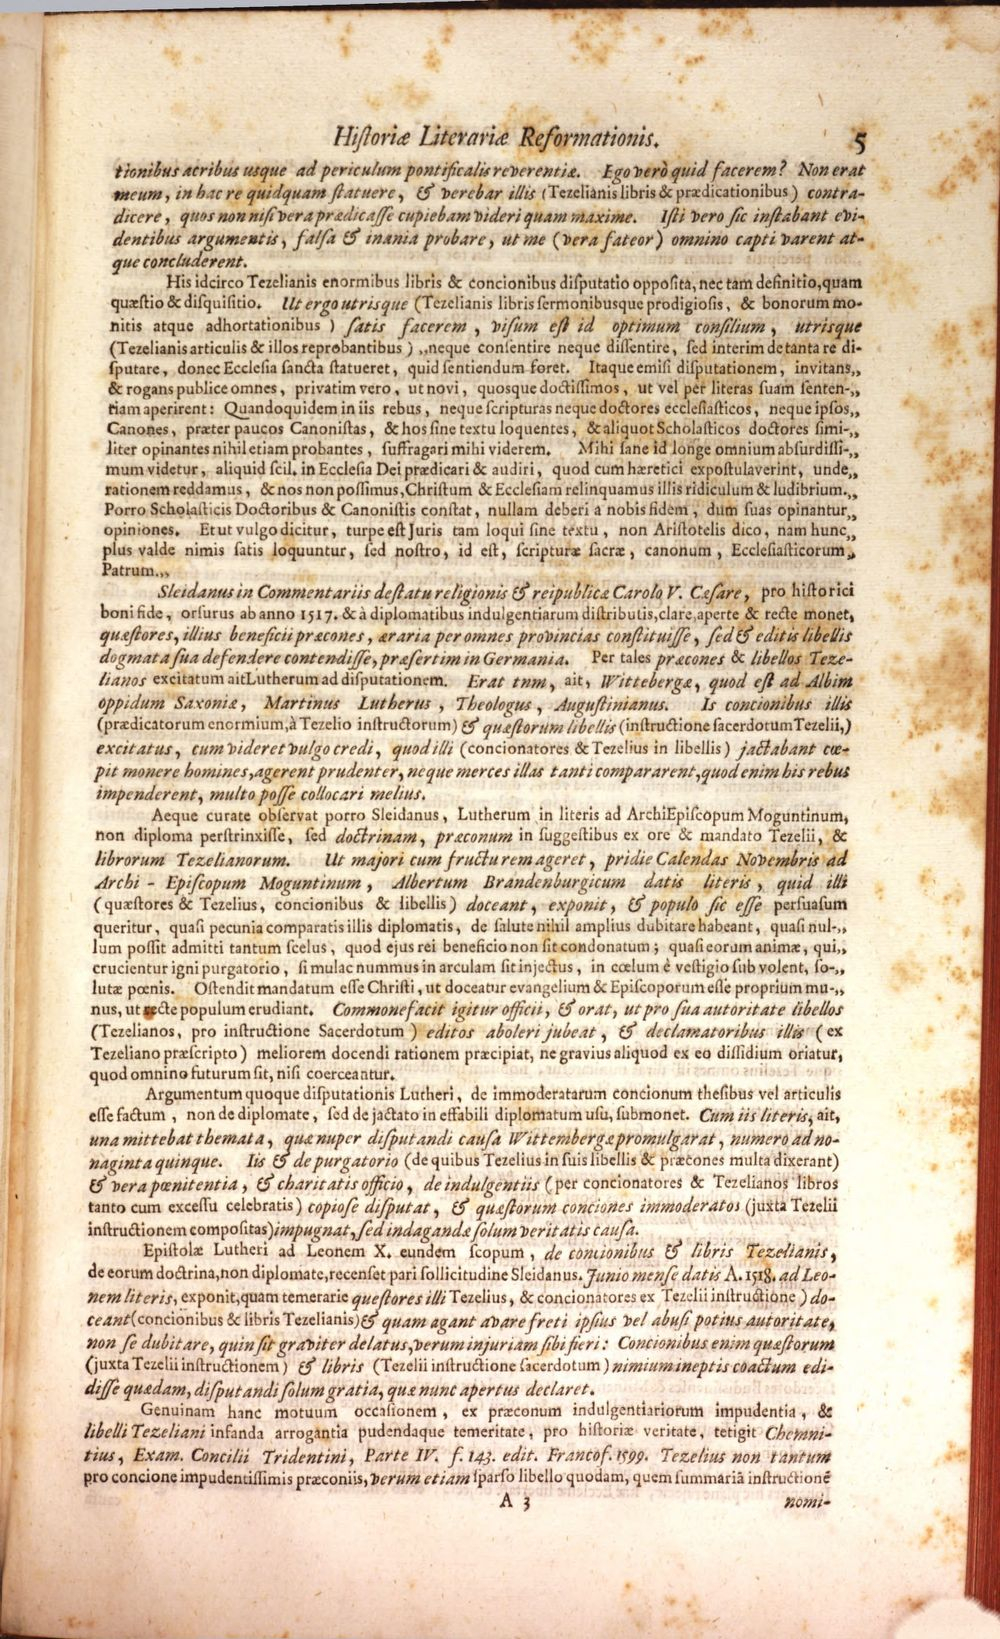 Historiæ Literariæ Reformationis. 5
tionibus acribus usque ad periculum pontificalis reverentiæ. Ego verò quid facerem? Non erat
meum, in hac re quidquam statuere, & verebar illis (Tezelianis libris & prædicationibus) contra-
dicere, quos non nisi vera prædicasse cupiebam videri quam maxime. Isti vero sic instabant evi-
dentibus argumentis, falsa & inania probare, ut me (vera fateor) omnino capti varent at-
que concluderent.
His idcirco Tezelianis enormibus libris & concionibus disputatio opposita, nec tam definitio, quam
quæstio & disquisitio. Ut ergo utrisque (Tezelianis libris sermonibusque prodigiosis, & bonorum mo-
nitis atque adhortationibus) satis facerem, visum est id optimum consilium, utrisque
(Tezelianis articulis & illos reprobantibus) ,,neque consentire neque dissentire, sed interim de tanta re di-
sputare, donec Ecclesia sancta statueret, quid sentiendum foret. Itaque emisi disputationem, invitans,,
& rogans publice omnes, privatim vero, ut novi, quosque doctissimos, ut vel per literas suam senten-,,
tiam aperirent: Quandoquidem in iis rebus, neque scripturas neque doctores ecclesiasticos, neque ipsos,,
Canones, præter paucos Canonistas, & hos sine textu loquentes, & aliquot Scholasticos doctores simi-,,
liter opinantes nihil etiam probantes, suffragari mihi viderem. Mihi sane id longe omnium absurdissi-,,
mum videtur, aliquid scil. in Ecclesia Dei prædicari & audiri, quod cum hæretici expostulaverint, unde,,
rationem reddamus, & nos non possimus, Christum & Ecclesiam relinquamus illis ridiculum & ludibrium.,,
Porro Scholasticis Doctoribus & Canonistis constat, nullam deberi a nobis fidem, dum suas opinantur,,
opiniones. Et ut vulgo dicitur, turpe est Juris tam loqui sine textu, non Aristotelis dico, nam hunc,,
plus valde nimis satis loquuntur, sed nostro, id est, scripturæ sacræ, canonum, Ecclesiasticorum,,
Patrum.,,
Sleidanus in Commentariis de statu religionis & reipublicæ Carolo V. Cæsare, pro historici
boni fide, orsurus ab anno 1517. & à diplomatibus indulgentiarum distributis, clare, aperte & recte monet,
quæstores, illius beneficii præcones, æraria per omnes provincias constituisse, sed & editis libellis
dogmata sua defendere contendisse, præsertim in Germania. Per tales præcones & libellos Teze-
lianos excitatum ait Lutherum ad disputationem. Erat tnm, ait, Wittebergæ, quod est ad Albim
oppidum Saxoniæ, Martinus Lutherus, Theologus, Augustinianus. Is concionibus illis
(prædicatorum enormium, à Tezelio instructorum) & quæstorum libellis (instructione sacerdotum Tezelii,)
excitatus, cum videret vulgo credi, quod illi (concionatores & Tezelius in libellis) jactabant cœ-
pit monere homines, agerent prudenter, neque merces illas tanti compararent, quod enim his rebus
impenderent, multo posse collocari melius.
Aeque curate observat porro Sleidanus, Lutherum in literis ad ArchiEpiscopum Moguntinum,
non diploma perstrinxisse, sed doctrinam, præconum in suggestibus ex ore & mandato Tezelii, &
librorum Tezelianorum. Ut majori cum fructu rem ageret, pridie Calendas Novembris ad
Archi - Episcopum Moguntinum, Albertum Brandenburgicum datis literis, quid illi
(quæstores & Tezelius, concionibus & libellis) doceant, exponit, & populo sic esse persuasum
queritur, quasi pecunia comparatis illis diplomatis, de salute nihil amplius dubitare habeant, quasi nul-,,
lum possit admitti tantum scelus, quod ejus rei beneficio non sit condonatum; quasi eorum animæ, qui,,
crucientur igni purgatorio, simulac nummus in arculam sit injectus, in cœlum è vestigio subvolent, so-,,
lutæ pœnis. Ostendit mandatum esse Christi, ut doceatur evangelium & Episcoporum esse proprium mu-,,
nus, ut recte populum erudiant. Commonefacit igitur officii, & orat, ut pro sua autoritate libellos
(Tezelianos, pro instructione Sacerdotum) editos aboleri jubeat, & declamatoribus illis (ex
Tezeliano præscripto) meliorem docendi rationem præcipiat, ne gravius aliquod ex eo dissidium oriatur,
quod omnino futurum sit, nisi coerceantur.
Argumentum quoque disputationis Lutheri, de immoderatarum concionum thesibus vel articulis
esse factum, non de diplomate, sed de jactato in effabili diplomatum usu, submonet. Cum iis literis, ait,
una mittebat themata, quæ nuper disputandi causa Wittembergæ promulgarat, numero ad no-
naginta quinque. Iis & de purgatorio (de quibus Tezelius in suis libellis & præcones multa dixerant)
& vera pœnitentia, & charitatis officio, de indulgentiis (per concionatores & Tezelianos libros
tanto cum excessu celebratis) copiose disputat, & quæstorum conciones immoderatos (juxta Tezelii
instructionem compositas) impugnat, sed indagandæ solum veritatis causa.
Epistolæ Lutheri ad Leonem X. eundem scopum, de concionibus & libris Tezelianis,
de eorum doctrina, non diplomate, recenset pari sollicitudine Sleidanus. Junio mense datis A. 1518. ad Leo-
nem literis, exponit, quam temerarie questores illi Tezelius, & concionatores ex Tezelii instructione) do-
ceant (concionibus & libris Tezelianis) & quam agant avare freti ipsius vel abusi potius autoritate,
non se dubitare, quin sit graviter delatus, verum injuriam sibi fieri: Concionibus enim quæstorum
(juxta Tezelii instructionem) & libris (Tezelii instructione sacerdotum) nimium ineptis coactum edi-
disse quædam, disputandi solum gratia, quæ nunc apertus declaret.
Genuinam hanc motuum occasionem, ex præconum indulgentiariorum impudentia, &
libelli Tezeliani infanda arrogantia pudendaque temeritate, pro historiæ veritate, tetigit Chemni-
tius, Exam. Concilii Tridentini, Parte IV. f. 143. edit. Francof. 1599. Tezelius non tantum
pro concione impudentissimis præconiis, verum etiam sparso libello quodam, quem summariā instructionē
A 3 nomi-